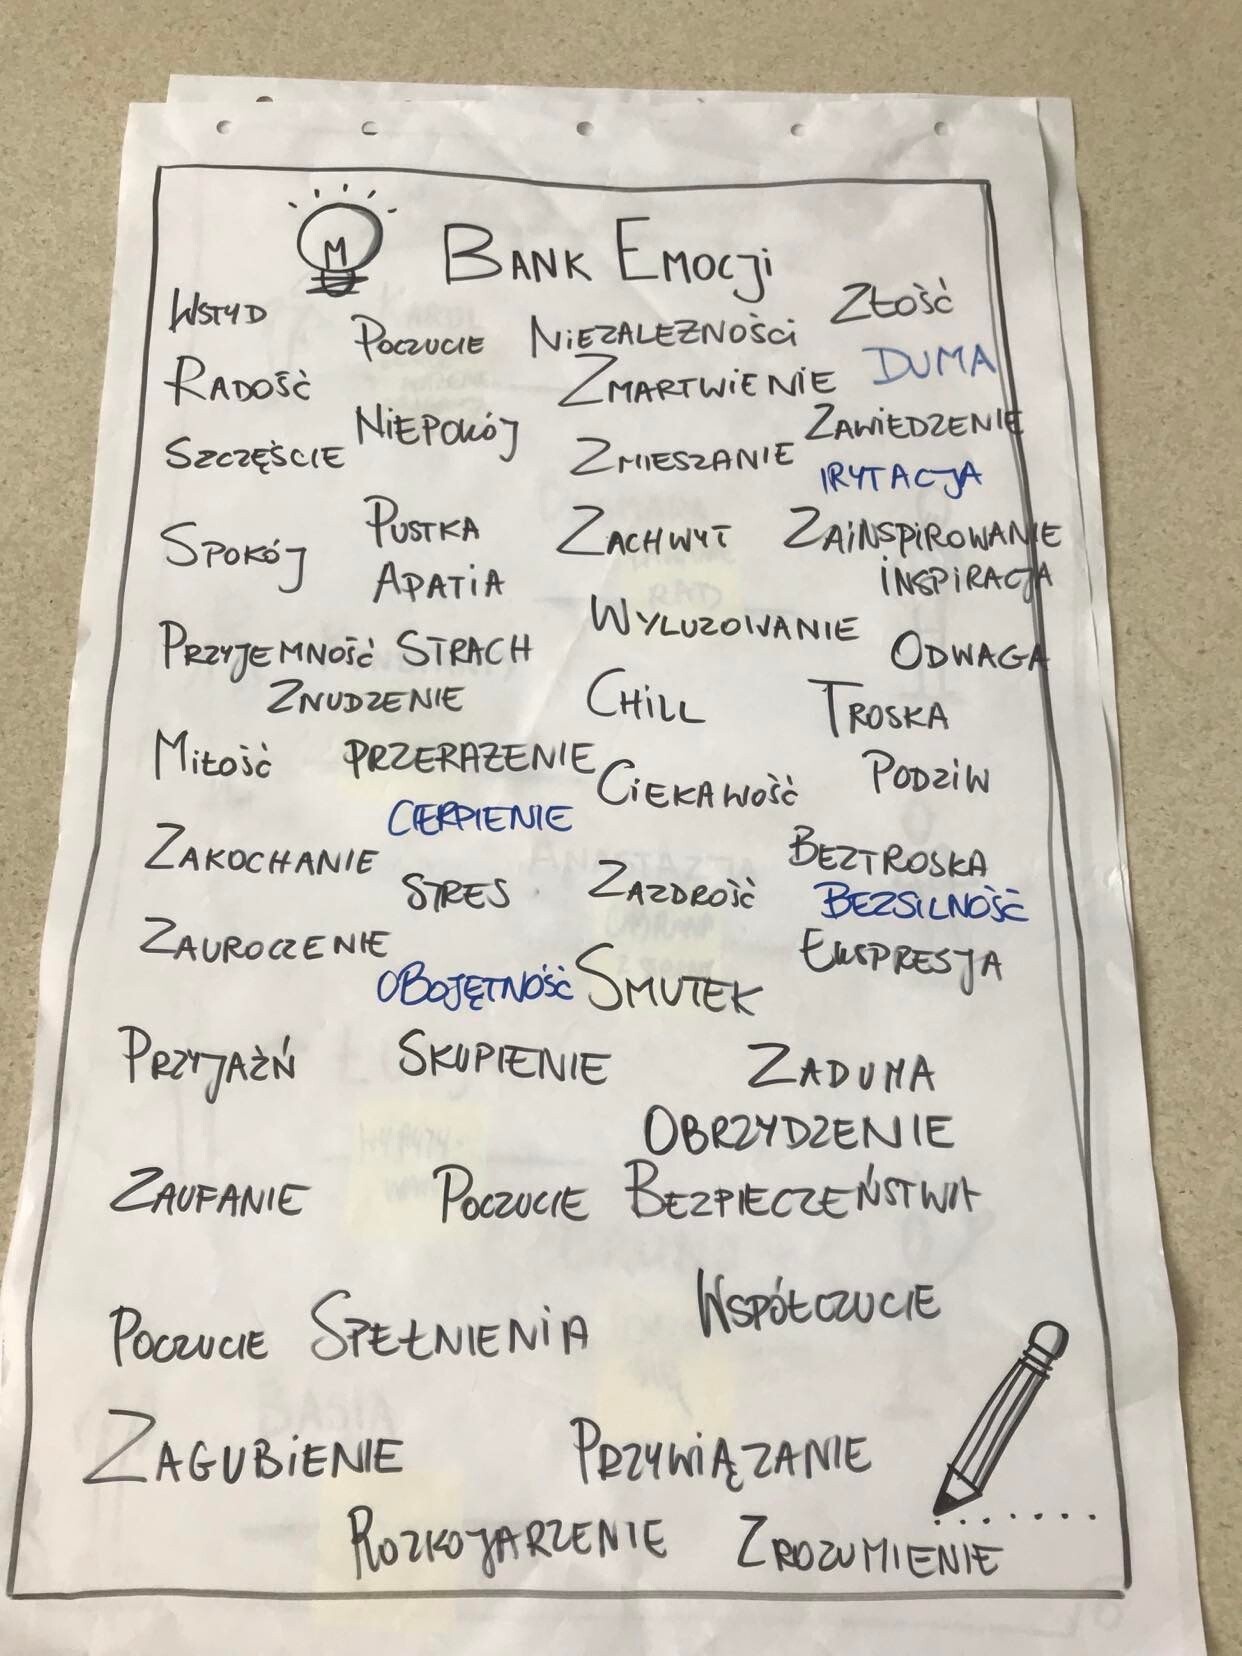 M
BANK EMOCJI
WSTYD
POCZUCIE NIEZALEŻNOŚCI
ZŁOŚĆ
RADOŚĆ
ZMARTWIENIE
DUMA
NIEPOKÓJ
ZAWIEDZENIE
SZCZĘŚCIE
ZMIESZANIE
IRYTACJA
SPOKÓJ
PUSTKA
ZACHWYT
ZAINSPIROWANIE
APATIA
INSPIRACJA
WYLUZOWANIE
PRZYJEMNOŚĆ
STRACH
ODWAGA
ZNUDZENIE
CHILL
TROSKA
MIŁOŚĆ
PRZERAŻENIE
CIEKAWOŚĆ
PODZIW
CIERPIENIE
ZAKOCHANIE
BEZTROSKA
STRES
ZAZDROŚĆ
BEZSILNOŚĆ
ZAUROCZENIE
EKSPRESJA
OBOJĘTNOŚĆ
SMUTEK
PRZYJAŹŃ
SKUPIENIE
ZADUMA
OBRZYDZENIE
ZAUFANIE
POCZUCIE BEZPIECZEŃSTWA
WSPÓŁCZUCIE
POCZUCIE SPEŁNIENIA
ZAGUBIENIE
PRZYWIĄZANIE
ROZKOJARZENIE
ZROZUMIENIE